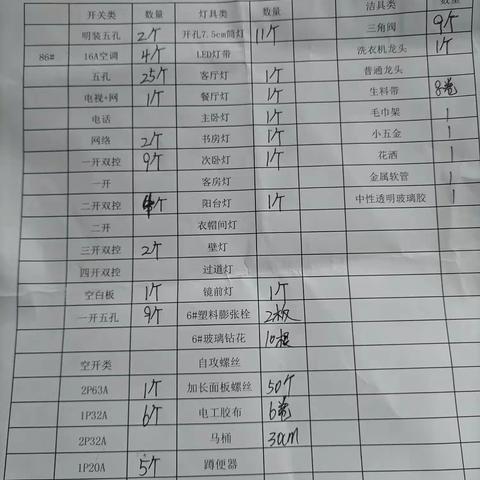 开关类 数量 灯具类 数量 洁具类 数量
明装五孔 2个 开孔7.5cm筒灯 11个 三角阀 9个
86# 16A空调 4个 LED灯带 洗衣机龙头 1个
五孔 25个 客厅灯 1个 普通龙头
电视+网 1个 餐厅灯 1个 生料带 8卷
电话 主卧灯 1个 毛巾架 1
网络 2个 书房灯 1个 小五金 1
一开双控 9个 次卧灯 1个 花洒 1
一开 客房灯 金属软管 1
二开双控 个 阳台灯 1个 中性透明玻璃胶 1
二开 衣帽间灯
三开双控 2个 壁灯
四开双控 过道灯
空白板 1个 镜前灯 1个
一开五孔 9个 6#塑料膨张栓 2板
6#玻璃钻花 10根
空开类 自攻螺丝
2P63A 1个 加长面板螺丝 50个
1P32A 6个 电工胶布 6卷
2P32A 马桶 30cm
1P20A 5个 蹲便器